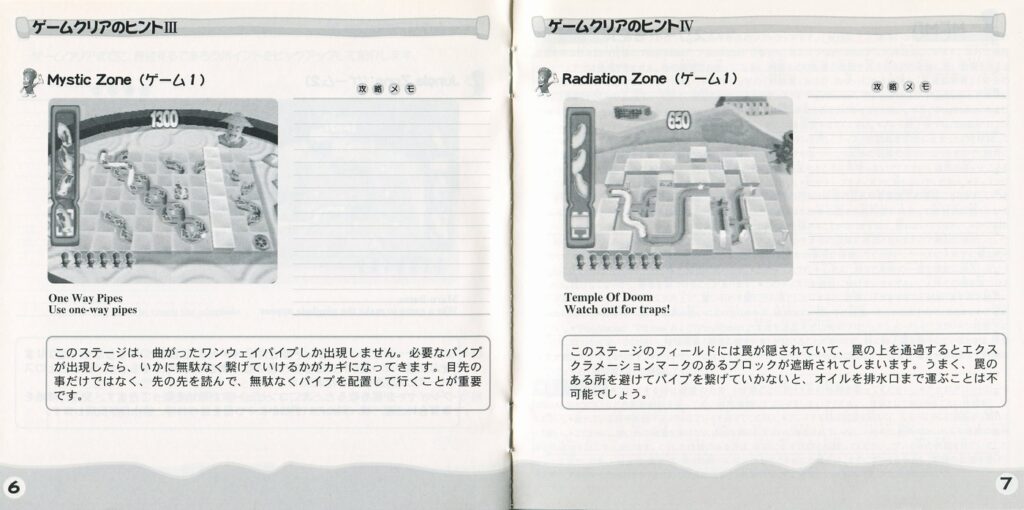 ゲームクリアのヒントⅢ
Mystic Zone（ゲーム1）
攻略メモ
1300
One Way Pipes
Use one-way pipes
このステージは、曲がったワンウェイパイプしか出現しません。必要なパイプ
が出現したら、いかに無駄なく繋げていけるかがカギになってきます。目先の
事だけではなく、先の先を読んで、無駄なくパイプを配置して行くことが重要
です。
6
ゲームクリアのヒントⅣ
Radiation Zone（ゲーム1）
攻略メモ
650
Temple Of Doom
Watch out for traps!
このステージのフィールドには罠が隠されていて、罠の上を通過するとエクス
クラメーションマークのあるブロックが遮断されてしまいます。うまく、罠の
ある所を避けてパイプを繋げていかないと、オイルを排水口まで運ぶことは不
可能でしょう。
7